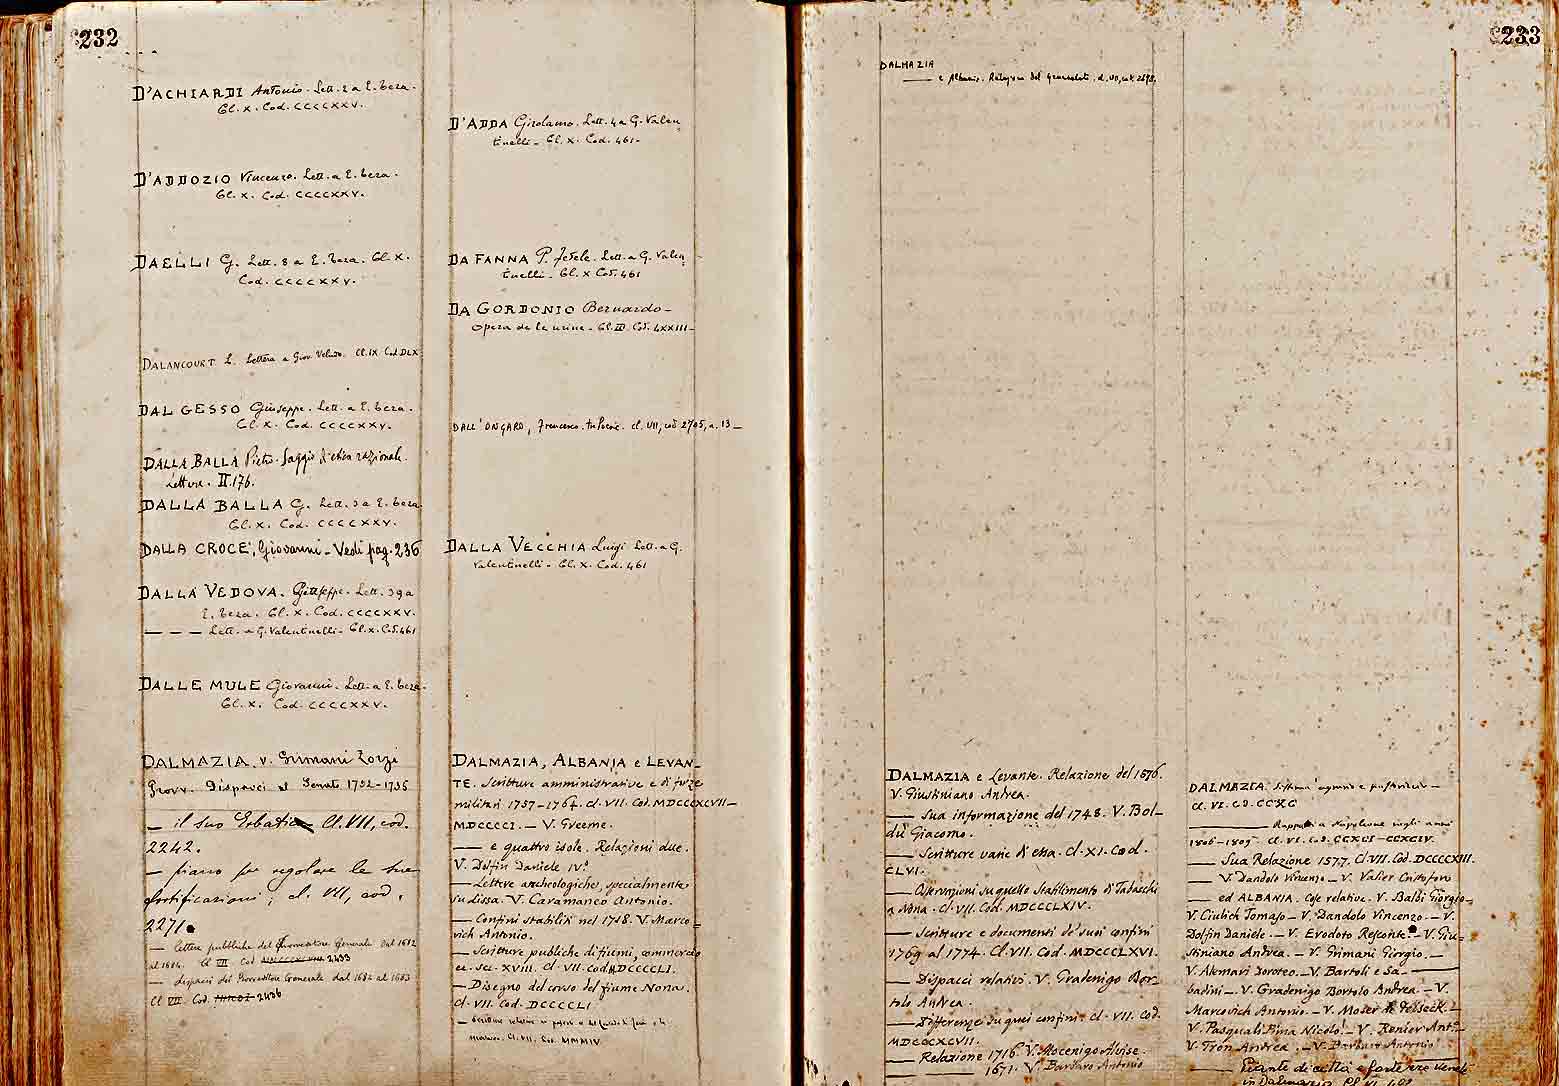 232
D'ACHIARDI Antonio. Lett. 2 a E. Teza.
Cl. X. Cod. CCCCXXV.
D'ADDOZIO Vincenzo. Lett. a E. Teza.
Cl. X. Cod. CCCCXXV.
DAELLI G. Lett. 8 a E. Teza. Cl. X.
Cod. CCCCXXV.
DALANCOURT L. Lettera a Giov. Veludo. Cl. IX Cod. DLX
DAL GESSO Giuseppe. Lett. a E. Teza.
Cl. X. Cod. CCCCXXV.
DALLA BALLA Pietro. Saggio d'etica razionale.
Lettere. II.176.
DALLA BALLA G. Lett. 2 a E. Teza
Cl. X. Cod. CCCCXXV.
DALLA CROCE, Giovanni - Vedi pag. 236
DALLA VEDOVA. Giuseppe. Lett. 39 a
E. Teza. Cl. X. Cod. CCCCXXV.
— — — Lett. a G. Valentinelli - Cl. X. Cod. 461
DALLE MULE Giovanni. Lett. a E. Teza.
Cl. X. Cod. CCCCXXV.
DALMAZIA. v. Grimani Zorzi
Provv. Dispacci al Senato 1732-1735
— il suo Erbatico Cl. VII, cod.
2242.
— piano per regolare le sue
fortificazioni; cl. VII, cod.
2271.
— lettere pubbliche del Provveditore Generale dal 1682
al 1684. Cl VII Cod 2433
— dispacci del Provveditore Generale dal 1682 al 1683
Cl VII. Cod. 2436
D'ADDA Girolamo. Lett. 4 a G. Valen
tinelli - Cl. X. Cod. 461-
DA FANNA P. Fedele. Lett. a G. Valen
tinelli - Cl. X Cod. 461
DA GORDONIO Bernardo -
Opera de le urine - Cl. III. Cod. LXXIII-
DALL'ONGARO, Francesco. cl. VII, cod 2705, n. 13 -
DALLA VECCHIA Luigi Lett. a G.
Valentinelli - Cl. X. Cod. 461
DALMAZIA, ALBANIA e LEVAN-
TE. Scritture amministrative e di forze
militari 1757-1764. Cl. VII. Cod. MDCCCXCVII-
MDCCCCI. - V. Greeme.
— e quattro isole. Relazioni due.
V. Dolfin Daniele IV.º
— Lettere archeologiche, specialmente
su dissa. V. Caramanco Antonio.
— Confini stabiliti nel 1718. V. Marco=
vich Antonio.
— Scritture pubbliche di fiumi, commercio
ec. sec. XVIII. Cl. VII. Cod. MDCCCCLI.
— Disegno del corso del fiume Nona.
Cl. VII. Cod. DCCCCLI
Cl. VII. Cod. MMMIV
233
DALMAZIA
— e Albania. Relazione del cl. VII, cod. 2698.
DALMAZIA e Levante. Relazione del 1576.
V. Giustiniano Andrea.
— Sua informazione del 1748. V. Bol-
dù Giacomo.
— Scritture varie d'essa. Cl. XI. Cod.
CLVI.
— Osservazioni su quello stabilimento di Tabacchi
a Nona. Cl. VII. Cod. MDCCCLXIV.
— Scritture e documenti de' suoi confini
1769 al 1774. Cl. VII. Cod. MDCCCLXVI.
— Dispacci relativi. V. Gradenigo Bor-
tolo Andrea.
— Differenze su quei confini. Cl. VII. Cod.
MDCCCXCVII.
— Relazione 1716. V. Mocenigo Alvise.
— 1671. V. Barbaro Antonio
DALMAZIA. Sistema agrario e
Cl. VI. Cod. CCXC
— Rapporti a Napoleone negli anni
1806-1809. Cl. VI. Cod. CCXCI-CCXCIV.
— Sua Relazione 1577. Cl. VII. Cod. DCCCCXIII.
— V. Dandolo Vincenzo - V. Valier Cristoforo
— ed ALBANIA. Cose relative. V. Balbi Giorgio-
V. Ciubich Tomaso - V. Dandolo Vincenzo - V.
Dolfin Daniele. - V. Erodoto Resconte. - V. Giu=
stiniano Andrea. - V. Grimani Giorgio. -
V. Alemari Doroteo. - V. Bartoli e Sa-
badini. - V. Gradenigo Bortolo Andrea. - V.
Marcovich Antonio. - V. Moser de Filseck. -
V. Pasquali Bina Nicolò. - V. Renier Ant. -
V. Tron Andrea. - V. Barbaro Antonio
— Piante di città e fortezze venete
in Dalmazia